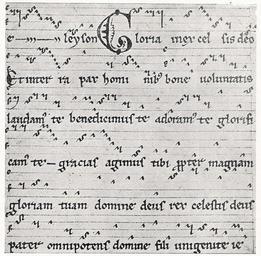 e — — n leyson Gloria in excel sis deo
Et in ter ra pax homi nib' bone uoluntatis
laudam' te benedicimus te adoram' te glorifi
cam' te gracias agimus tibi ppter magnam
gloriam tuam domine deus rex celestis deus
pater omnipotens domine fili unigenite ie